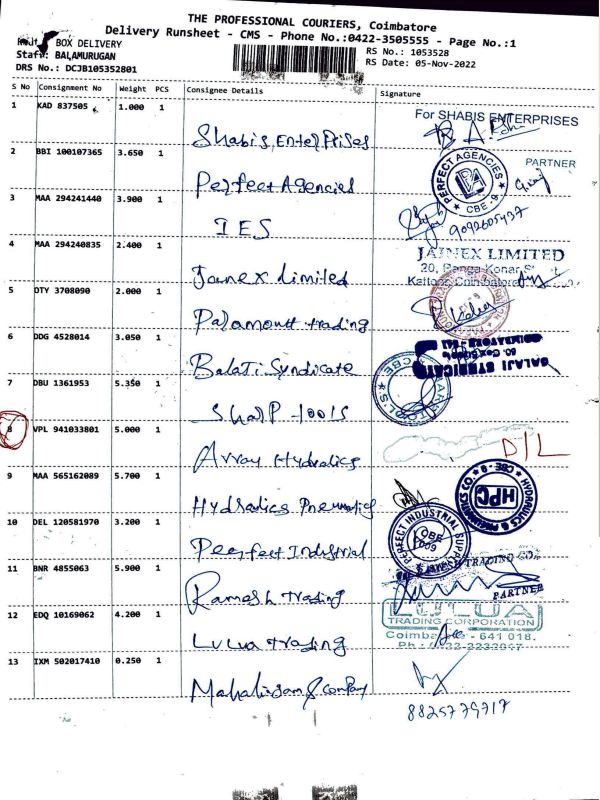 THE PROFESSIONAL COURIERS, Coimbatore
Delivery Runsheet - CMS - Phone No.:0422-3505555 - Page No.:1
BOX DELIVERY
RS No.: 1053528
Staff: BALAMURUGAN
RS Date: 05-Nov-2022
DRS No.: DCJB105352801
S No Consignment No Weight PCS Consignee Details Signature
1 KAD 837505 1.000 1 Shabis Enterprises
For SHABIS ENTERPRISES
PARTNER
2 BBI 100107365 3.650 1 Perfect Agencies
PERFECT AGENCIES
PA
CBE-9
3 MAA 294241440 3.900 1 IES
9092605437
4 MAA 294240835 2.400 1 Jainex Limited
JAINEX LIMITED
20, Ranga Konar
5 OTY 3708090 2.000 1 Paramount trading
6 DDG 4528014 3.050 1 Balaji Syndicate
BALAJI SYNDICATE
7 DBU 1361953 5.350 1 Sharp tools
CBE
8 VPL 941033801 5.000 1 Array Hydralics
D/L
9 MAA 565162089 5.700 1 Hydraulics Pneumatics
HYDRAULICS & PNEUMATICS CO.
HPC
CBE - 9
10 DEL 120581970 3.200 1 Perfect Industrial
PERFECT INDUSTRIAL
CBE
11 BNR 4855063 5.900 1 Ramesh trading
TRADING CO.
PARTNER
12 EDQ 10169062 4.200 1 Lulua trading
LULUA
TRADING CORPORATION
Coimbatore - 641 018.
13 IXM 502017410 0.250 1
8825779717